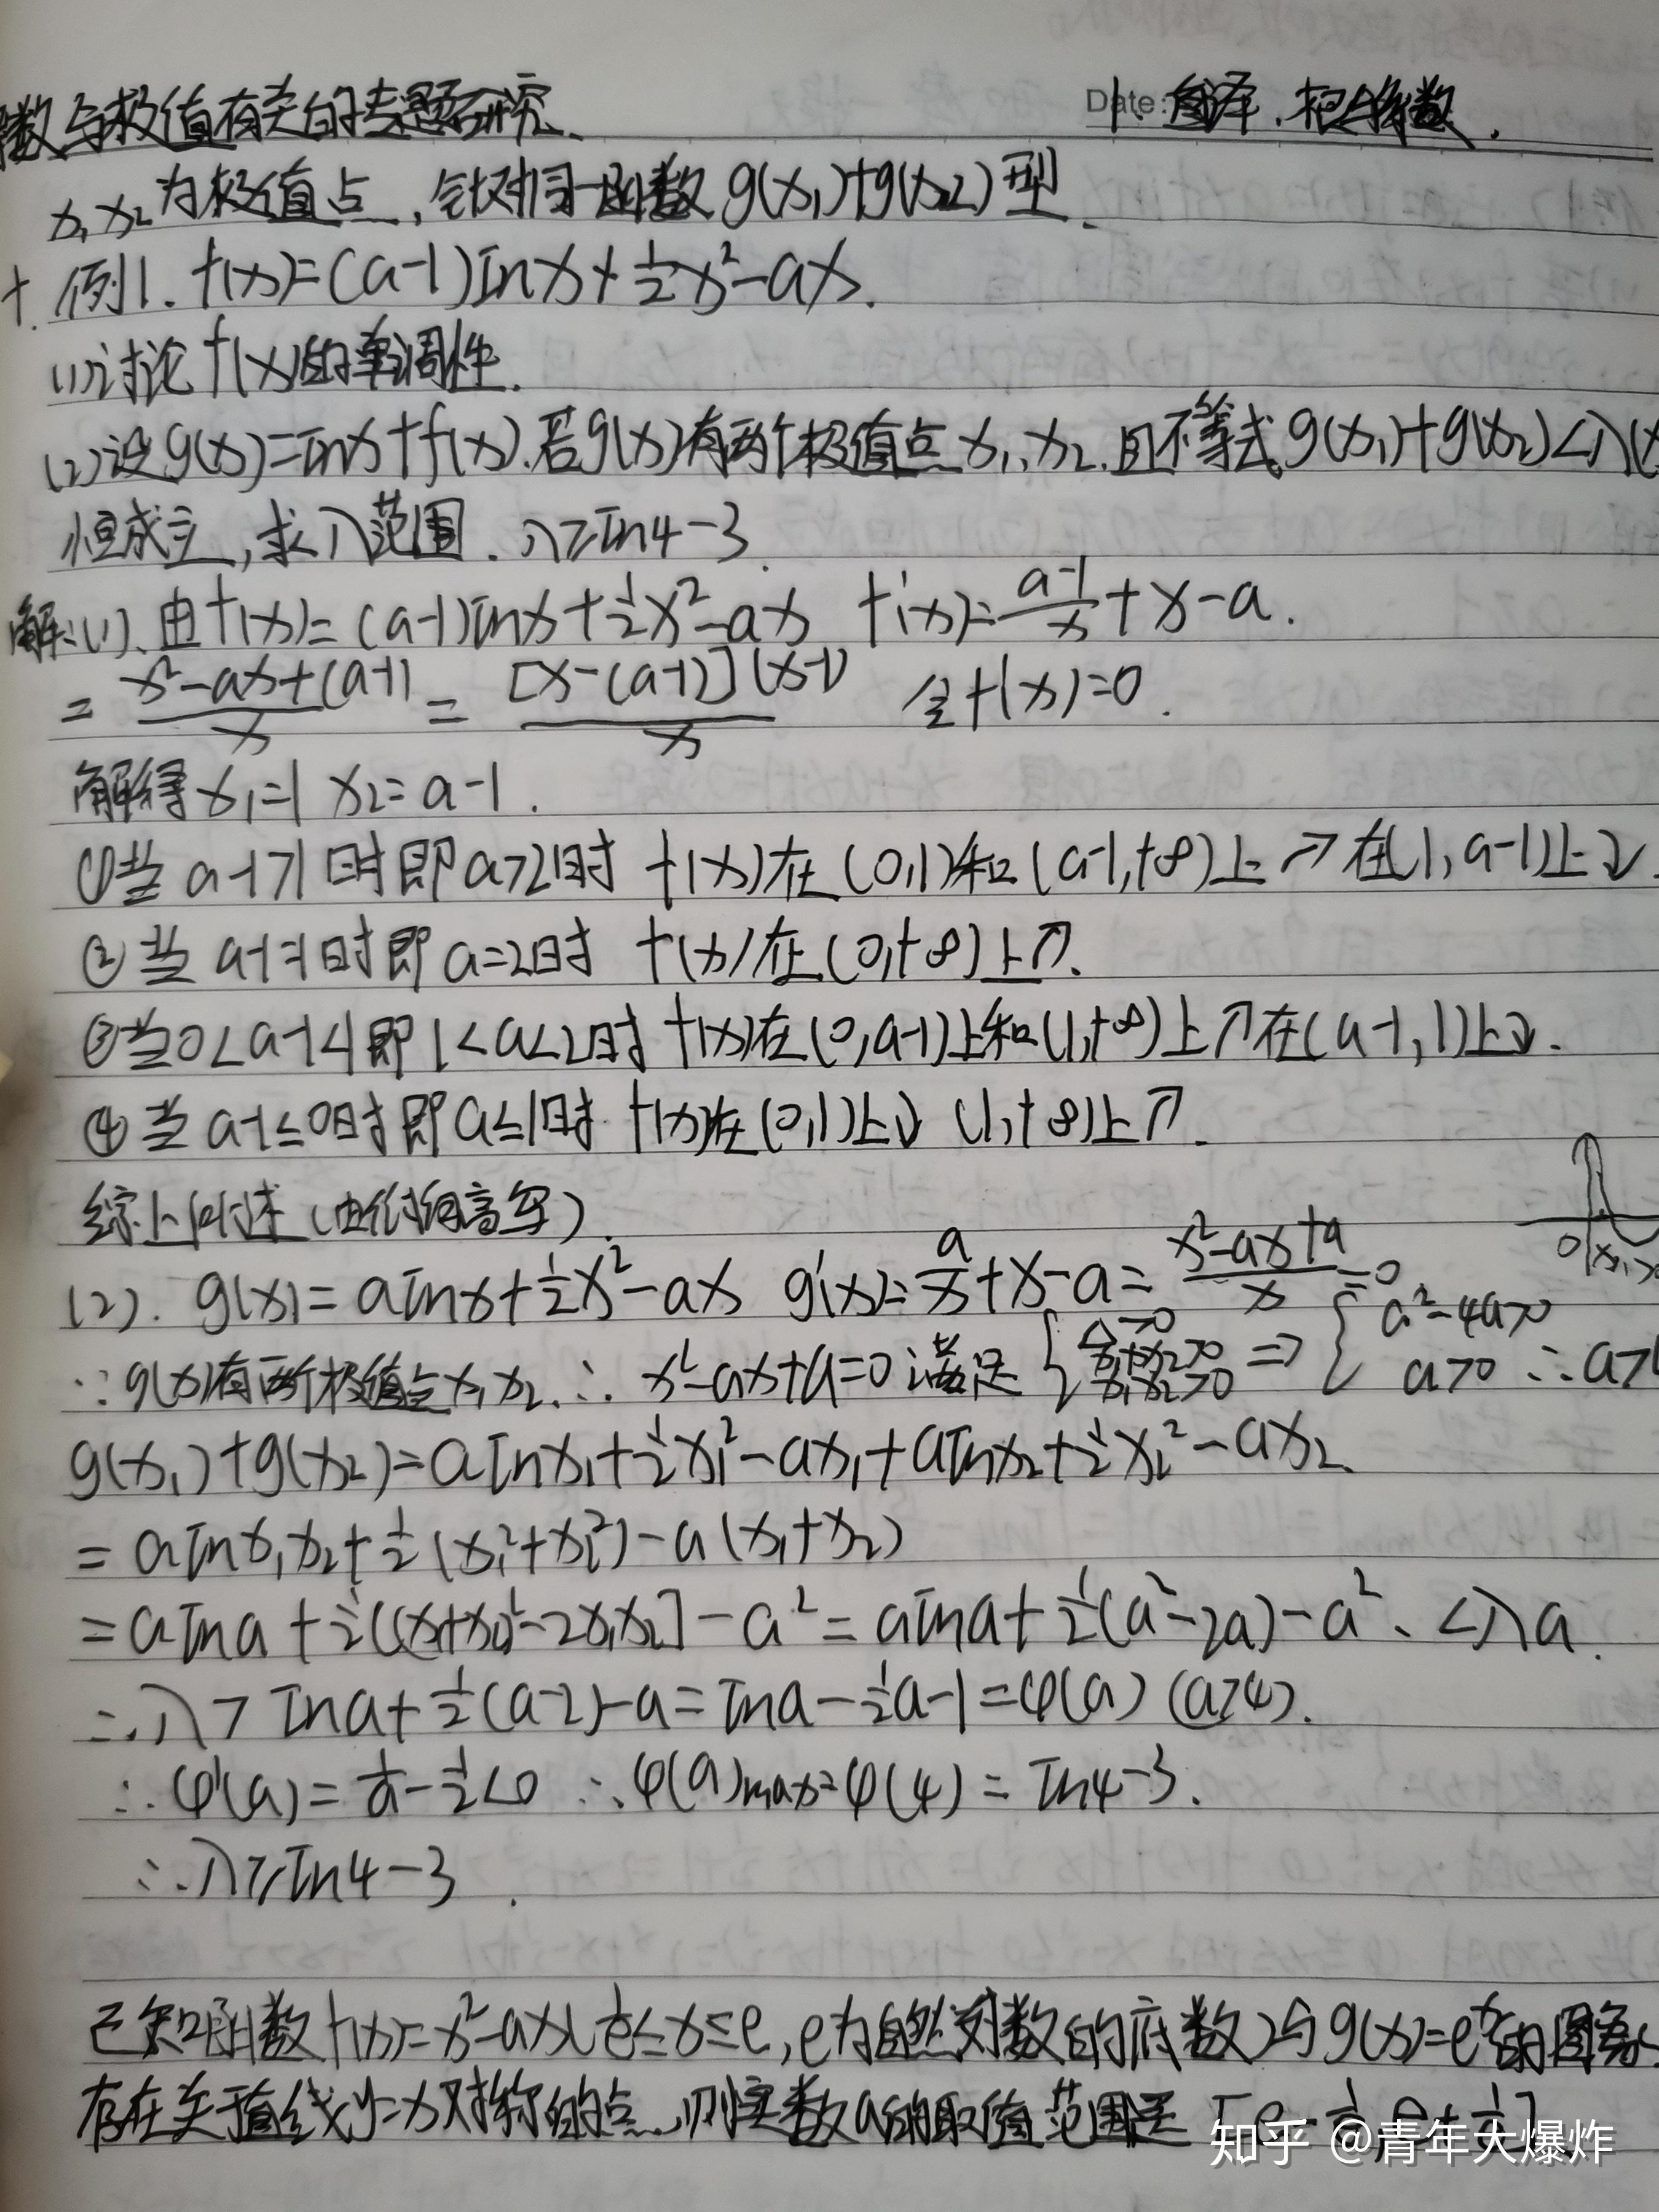 数与极值有关的专题研究.
Date:
x₁,x₂为极值点,针对同一函数g(x₁)+g(x₂)型.
例1. f(x)=(a-1)lnx+½x²-ax.
(1)讨论f(x)的单调性.
(2)设g(x)=lnx+f(x).若g(x)有两个极值点x₁,x₂.且不等式g(x₁)+g(x₂)<λ(x
恒成立,求λ范围. λ≥ln4-3.
解:(1).由f(x)=(a-1)lnx+½x²-ax f'(x)=(a-1)/x+x-a.
=(x²-ax+(a-1))/x=([x-(a-1)](x-1))/x 令f'(x)=0.
解得x₁=1 x₂=a-1.
①当a-1>1时即a>2时 f(x)在(0,1)和(a-1,+∞)上↗在(1,a-1)上↘.
②当a-1=1时即a=2时 f(x)在(0,+∞)上↗.
③当0<a-1<1即1<a<2时f(x)在(0,a-1)上和(1,+∞)上↗在(a-1,1)上↘.
④当a-1≤0时即a≤1时f(x)在(0,1)上↘ (1,+∞)上↗.
综上所述
(2). g(x)=alnx+½x²-ax g'(x)=a/x+x-a=(x²-ax+a)/x=0
0 x₁
∵g(x)有两个极值点x₁,x₂.∴x²-ax+a=0满足{Δ>0 x₁+x₂>0 x₁x₂>0 ⇒{a²-4a>0 a>0 ∴a>
g(x₁)+g(x₂)=alnx₁+½x₁²-ax₁+alnx₂+½x₂²-ax₂
=alnx₁x₂+½(x₁²+x₂²)-a(x₁+x₂)
=alna+½[(x₁+x₂)²-2x₁x₂]-a²=alna+½(a²-2a)-a². <λa.
∴λ>lna+½(a-2)-a=lna-½a-1=φ(a) (a>4).
∴φ'(a)=1/a-½<0 ∴φ(a)max=φ(4)=ln4-3.
∴λ≥ln4-3.
已知函数f(x)=x²-ax(1/e≤x≤e,e为自然对数的底数)与g(x)=eˣ的图象
存在关于直线y=x对称的点,则实数a的取值范围是
知乎 @青年大爆炸